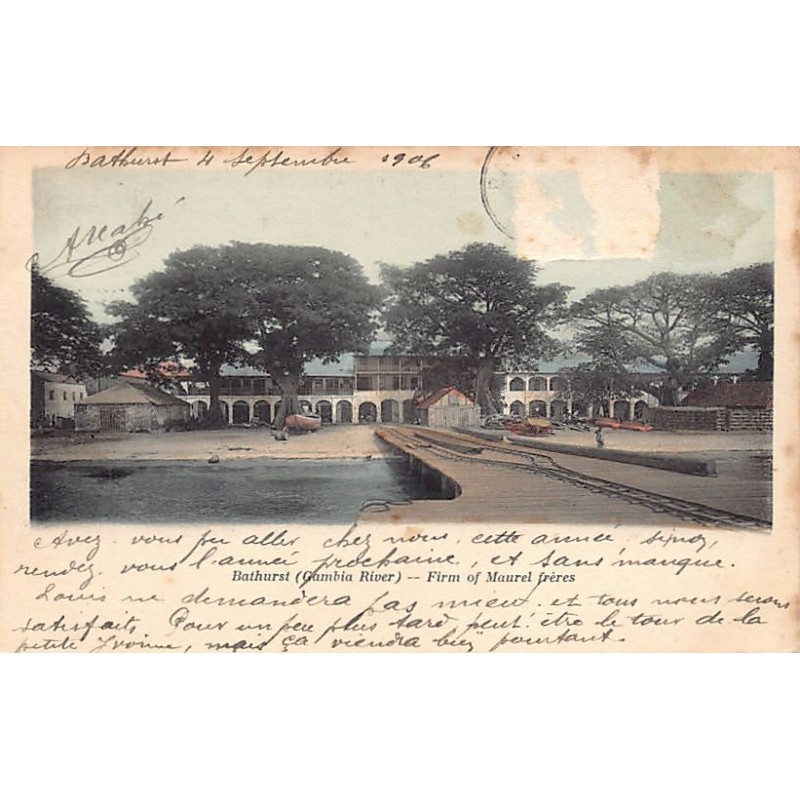 Bathurst 4 Septembre 1906
Avez. vous pu aller chez nous, cette année. sinoz,
rendez. vous l'année prochaine, et sans manque.
Bathurst (Gambia River) -- Firm of Maurel frères
Louis ne demandera pas mieu. et tous nous serons
satisfait, Pour un peu plus tard, peut. être le tour de la
petite Yvonne, mais ça viendra bien pourtant.